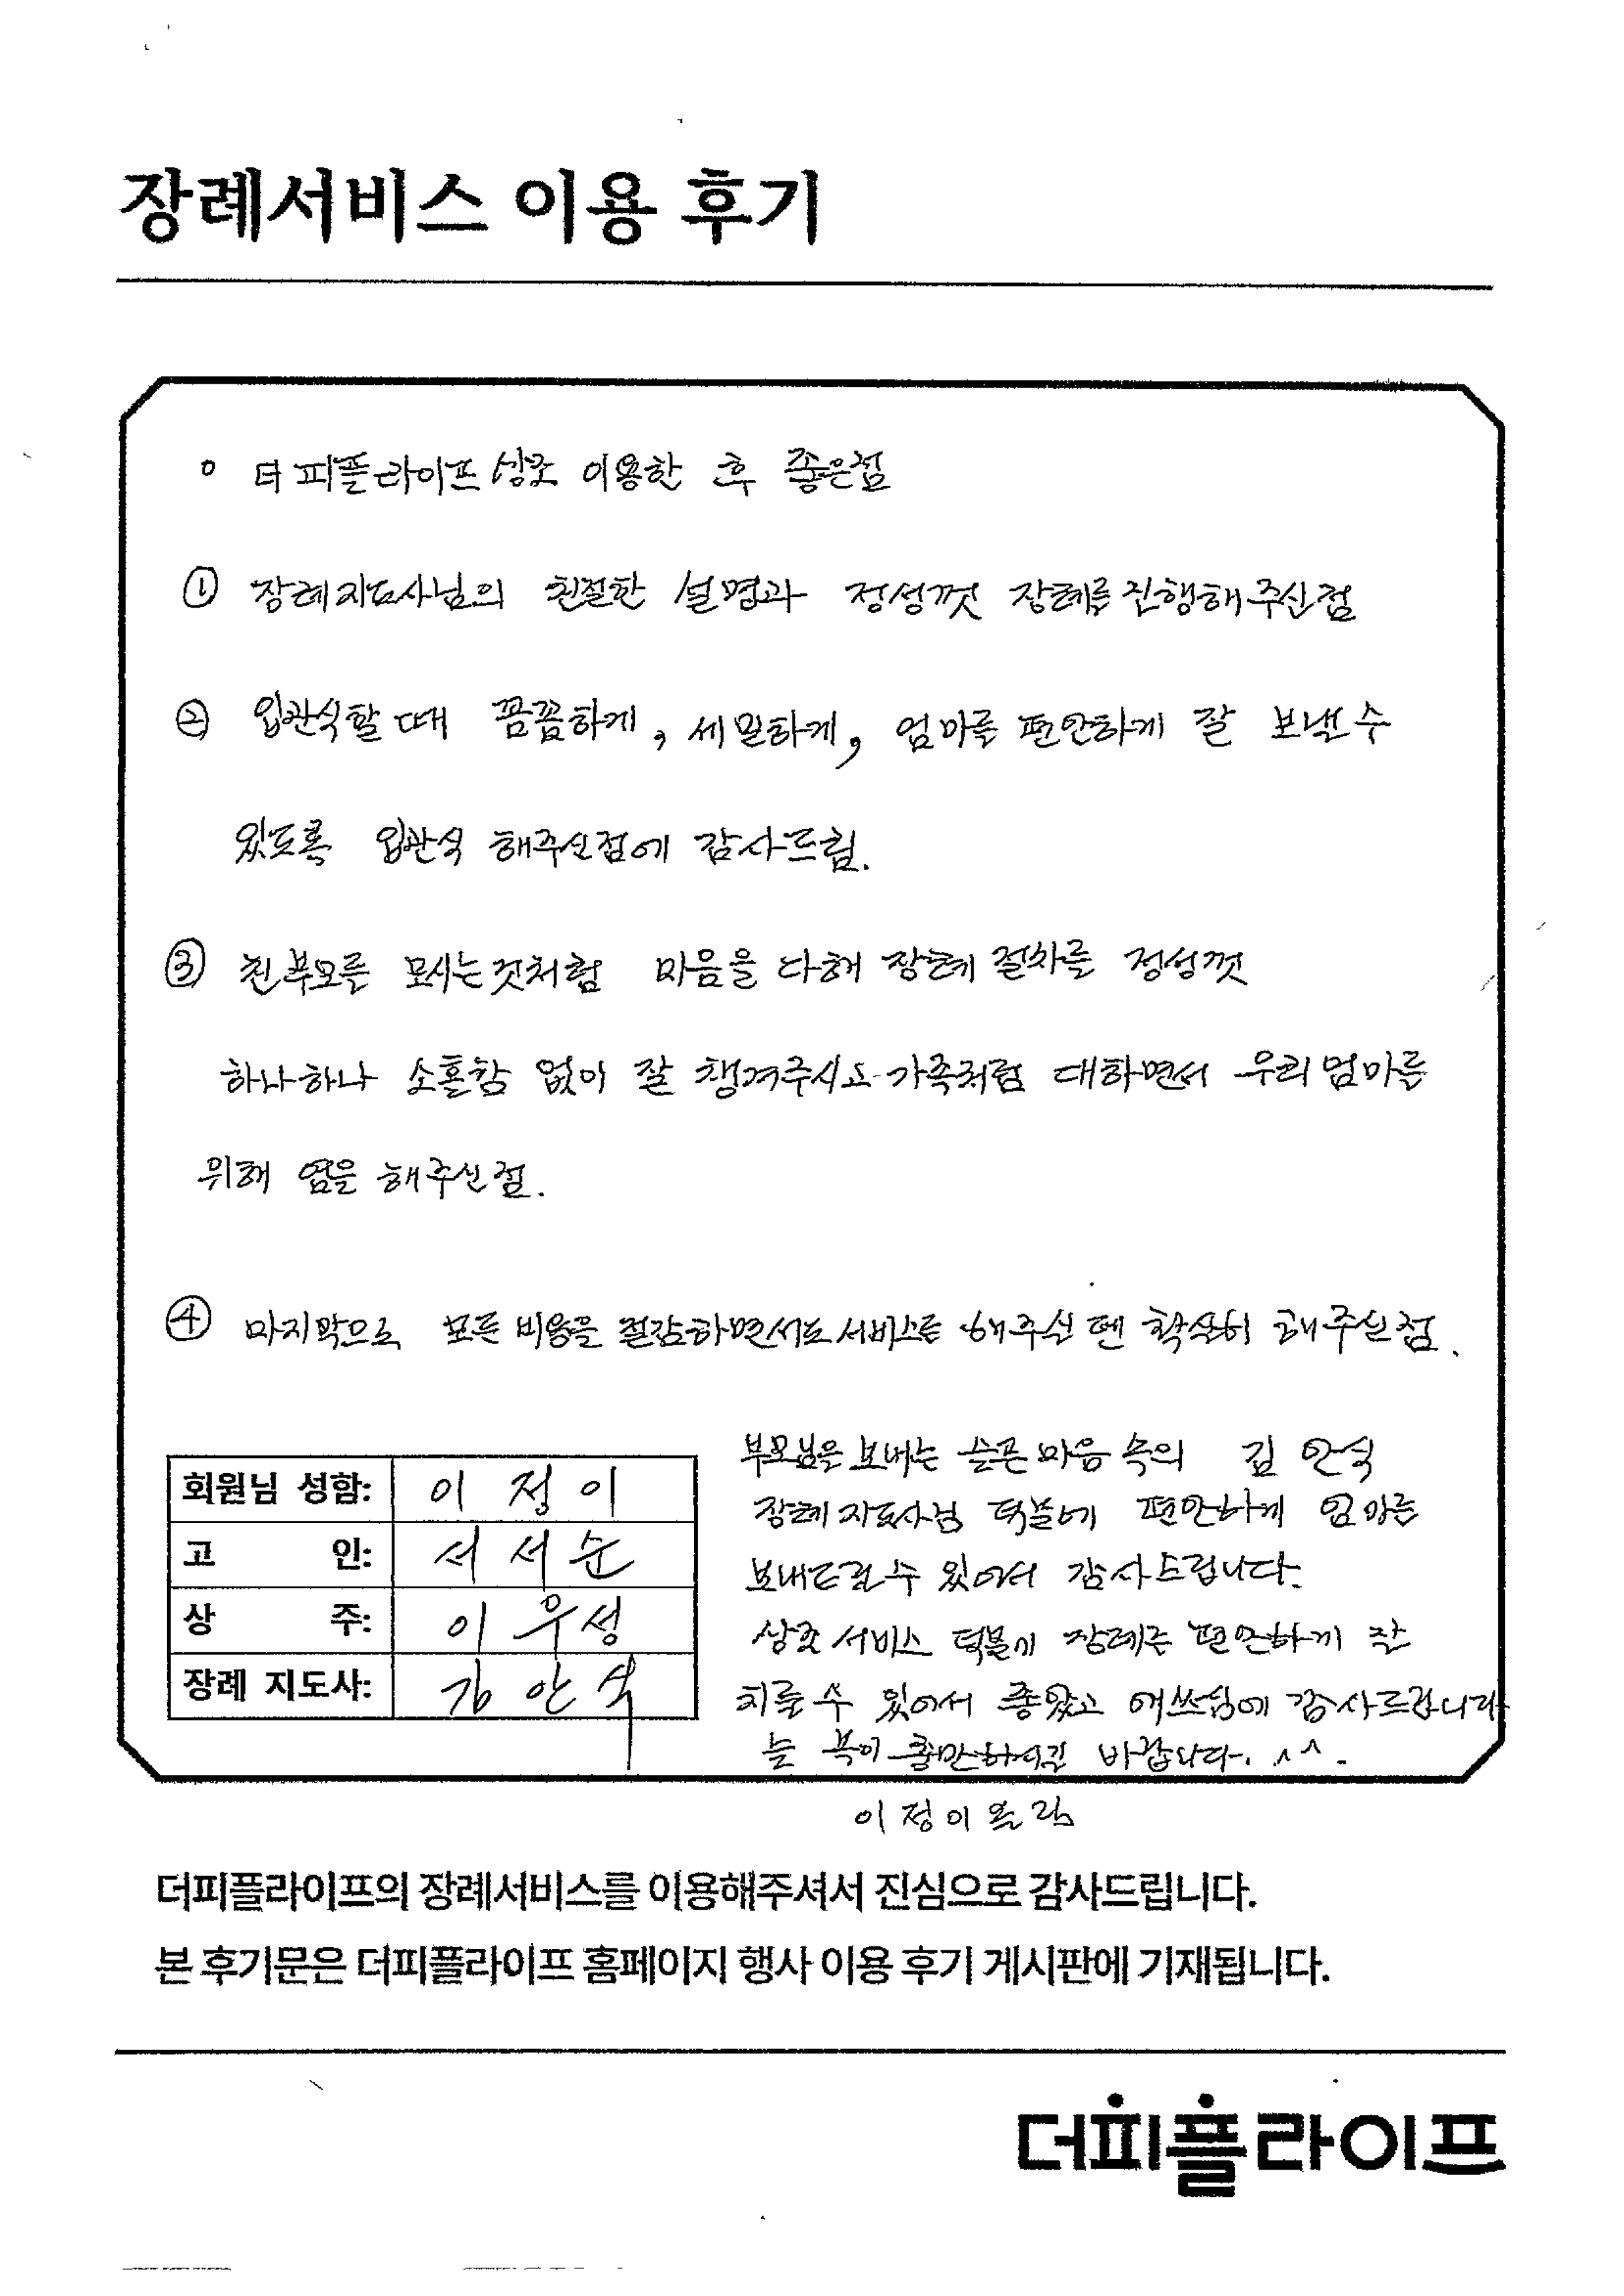 장례서비스 이용 후기
o 더피플라이프상조 이용한 후 좋은점
① 장례지도사님의 친절한 설명과 정성껏 장례를 진행해주신점
② 입관식할때 꼼꼼하게, 세밀하게, 엄마를 편안하게 잘 보낼수
있도록 입관식 해주신점에 감사드림.
③ 친부모를 모시는것처럼 마음을 다해 장례 절차를 정성껏
하나하나 소홀함 없이 잘 챙겨주시고 가족처럼 대하면서 우리엄마를
위해 염을 해주신점.
④ 마지막으로 모든 비용을 절감하면서도 서비스를 해주실 땐 확실히 해주신점.
부모님을 보내는 슬픈 마음 속의 김 안식
장례지도사님 덕분에 편안하게 엄마를
보내드릴수 있어서 감사드립니다.
상조 서비스 덕분에 장례를 편안하게 잘
치를 수 있어서 좋았고 애쓰심에 감사드립니다
늘 복이 충만하시길 바랍니다. ^^.
이정이 올림
회원님 성함: 이 정 이
고 인: 서 서 순
상 주: 이 우 성
장례 지도사: 김 안 식
더피플라이프의 장례서비스를 이용해주셔서 진심으로 감사드립니다.
본 후기문은 더피플라이프 홈페이지 행사 이용 후기 게시판에 기재됩니다.
더피플라이프